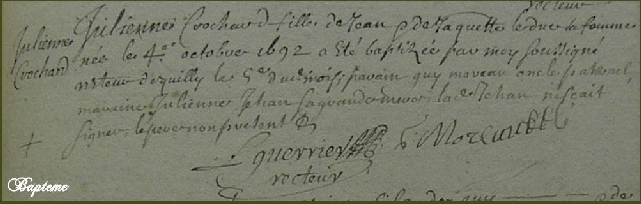 recteur
Julienne Crochard
Julienne Crochard fille de Jean & de Jaquette leduc sa femme
née le 4e octobre 1692 a été baptizée par moy soussigné
recteur de quilly le 5e du d mois; parain guy moreau oncle paternel,
maraine Julienne Jehan sa grande mere; lad Jehan ne scait
signer, le pere non present &
guerrier
recteur
Bapteme